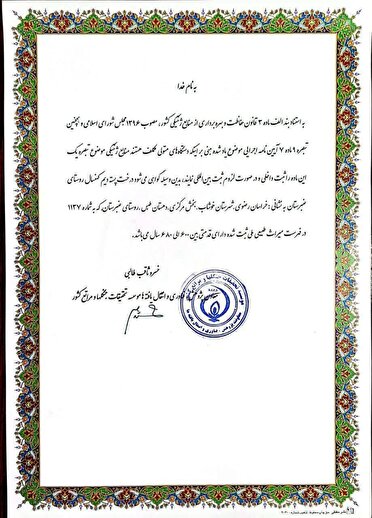 به نام خدا
به استناد بند الف ماده ۳ قانون حفاظت و بهره برداری از منابع ژنتیکی کشور، مصوب ۱۳۹۶ مجلس شورای اسلامی و همچنین
تبصره ۹ ماده ۷ آیین نامه اجرایی موضوع یاد شده مبنی بر اینکه دستگاه‌های متولی مکلف هستند منابع ژنتیکی موضوع تبصره یک
این ماده را ثبت داخلی و در صورت لزوم ثبت بین المللی نمایند، بدین وسیله گواهی می‌شود درخت پسته دیم کهنسال روستای
عنبرستان به نشانی: خراسان رضوی، شهرستان خوشاب، بخش مرکزی، دهستان طبس، روستای عنبرستان، که به شماره ۱۱۳۷
در فهرست میراث طبیعی ملی ثبت شده دارای قدمتی بین ۶۰۰ الی ۶۸۰ سال می‌باشد.
نصره ثاقب طالبی
معاون پژوهش، فناوری و انتقال یافته ها موسسه تحقیقات جنگلها و مراتع کشور